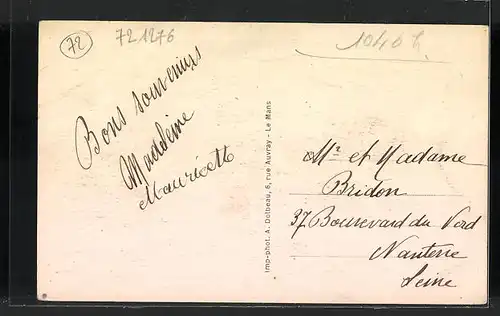 72
721276
1040 h
Bons souvenirs
Madeleine
Mauricette
Imp-phot. A. Dolbeau, 6, rue Auvray - Le Mans
Mr et Madame
Bridon
37 Boulevard du Nord
Nanterre
Seine